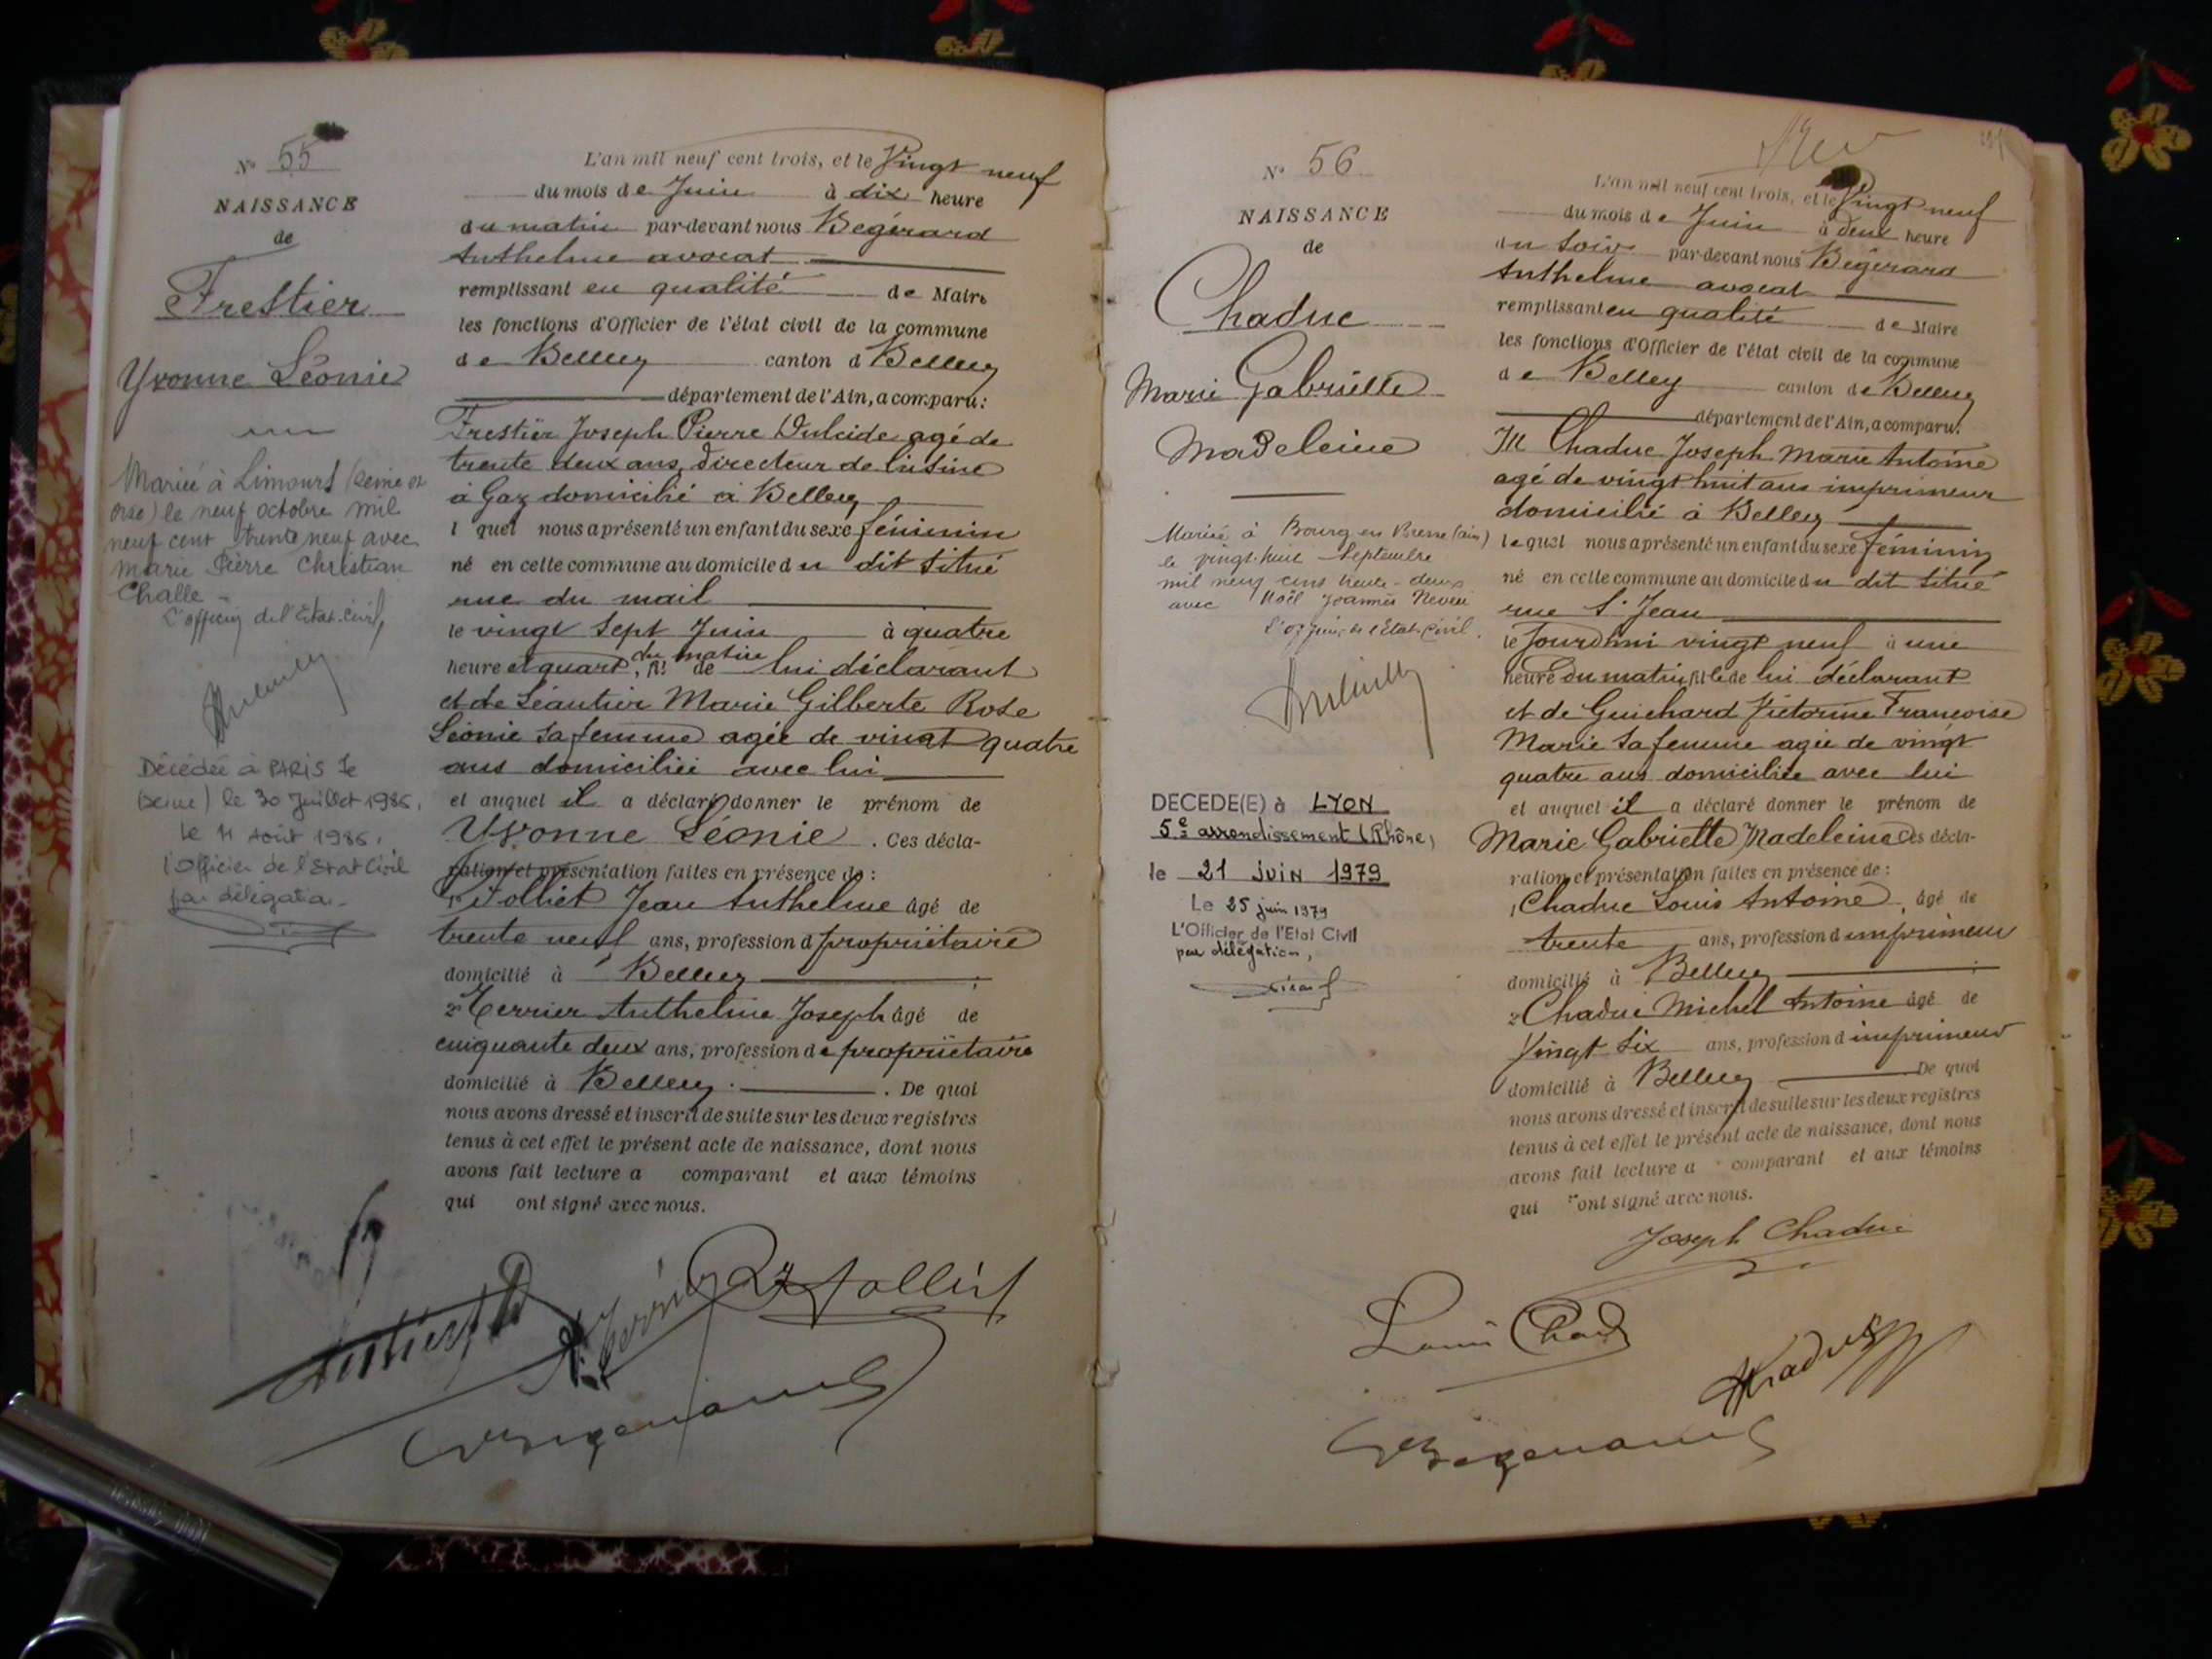 N° 55
NAISSANCE
de
Frestier
Yvonne Léonie
Mariée à Limours (Seine et
Oise) le neuf octobre mil
neuf cent trente neuf avec
Marie Pierre Christian
Challe -
L'officier de l'Etat-Civil,
Décédée à PARIS 7e
(Seine) le 30 Juillet 1986,
Le 11 Août 1986,
l'Officier de l'Etat Civil
par délégation
L'an mil neuf cent trois, et le Vingt neuf
du mois de Juin à dix heure
du matin par-devant nous Bégérard
Anthelme avocat
remplissant en qualité de Maire
les fonctions d'Officier de l'état civil de la commune
de Belley canton d Belley
département de l'Ain, a comparu:
Frestier Joseph Pierre Dulcide agé de
trente deux ans, directeur de l'usine
à Gaz domicilié à Belley
l quel nous a présenté un enfant du sexe féminin
né en cette commune au domicile du dit situé
rue du mail
le vingt sept Juin à quatre
heure et quart, du matin fil de lui déclarant
et de Léautier Marie Gilberte Rose
Léonie sa femme agée de vingt quatre
ans domiciliée avec lui
et auquel il a déclaré donner le prénom de
Yvonne Léonie . Ces décla-
ration et présentation faites en présence de :
1° Folliet Jean Anthelme âgé de
trente neuf ans, profession d propriétaire
domicilié à Belley
2° Terrier Anthelme Joseph âgé de
cinquante deux ans, profession de propriétaire
domicilié à Belley . De quoi
nous avons dressé et inscrit de suite sur les deux registres
tenus à cet effet le présent acte de naissance, dont nous
avons fait lecture a comparant et aux témoins
qui ont signé avec nous.
Folliet
N° 56
NAISSANCE
de
Chaduc
Marie Gabrielle
Madeleine
Mariée à Bourg en Bresse (Ain)
le vingt-huit Septembre
mil neuf cent trente-deux
avec Noël Joannès Neveu
L'officier de l'Etat-Civil.
DECEDE(E) à LYON
5e arrondissement (Rhône)
le 21 JUIN 1979
Le 25 juin 1979
L'Officier de l'Etat Civil
par délégation,
L'an mil neuf cent trois, et le Vingt neuf
du mois de Juin à deux heure
du soir par-devant nous Bégérard
Anthelme avocat
remplissant en qualité de Maire
les fonctions d'Officier de l'état civil de la commune
de Belley canton de Belley
département de l'Ain, a comparu:
M Chaduc Joseph Marie Antoine
agé de vingt huit ans imprimeur
domicilié à Belley
lequel nous a présenté un enfant du sexe féminin
né en cette commune au domicile du dit situé
rue St Jean
le jourdhui vingt neuf à une
heure du matin fille de lui déclarant
et de Guichard Victorine Françoise
Marie sa femme agée de vingt
quatre ans domiciliée avec lui
et auquel il a déclaré donner le prénom de
Marie Gabrielle Madeleine Ces décla-
ration et présentation faites en présence de :
1° Chaduc Louis Antoine, âgé de
trente ans, profession d imprimeur
domicilié à Belley
2° Chaduc Michel Antoine âgé de
Vingt six ans, profession d imprimeur
domicilié à Belley De quoi
nous avons dressé et inscrit de suite sur les deux registres
tenus à cet effet le présent acte de naissance, dont nous
avons fait lecture a comparant et aux témoins
qui ont signé avec nous.
Joseph Chaduc
Louis Chad
Chaduc